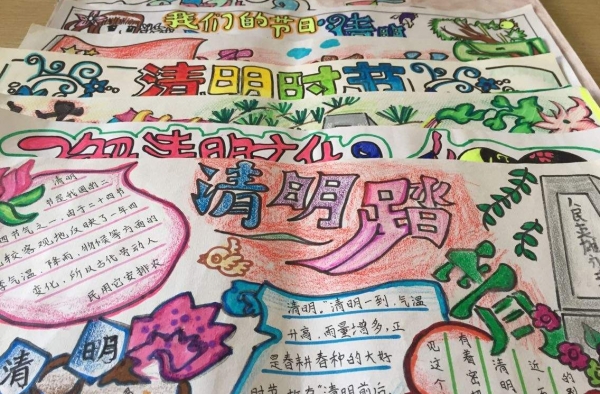 我们的节日·清明
清明时节
了解清明文化
清明踏
清明
节应我国的二
四节气之一,由于二十四节
比较客观地反映了一年四
季气温、降雨、物候等方面的
变化,所以古代劳动人
民用它安排农
清明
清明。"清明一到,气温
升高,雨量增多,正
是春耕春种的大好
时节
清明前后,
近,
清明
有着密
这个
人民英雄